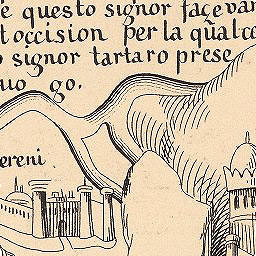 è questo signor facevan
t occision per la qualce
o signor tartaro prese
uo go.
ereni